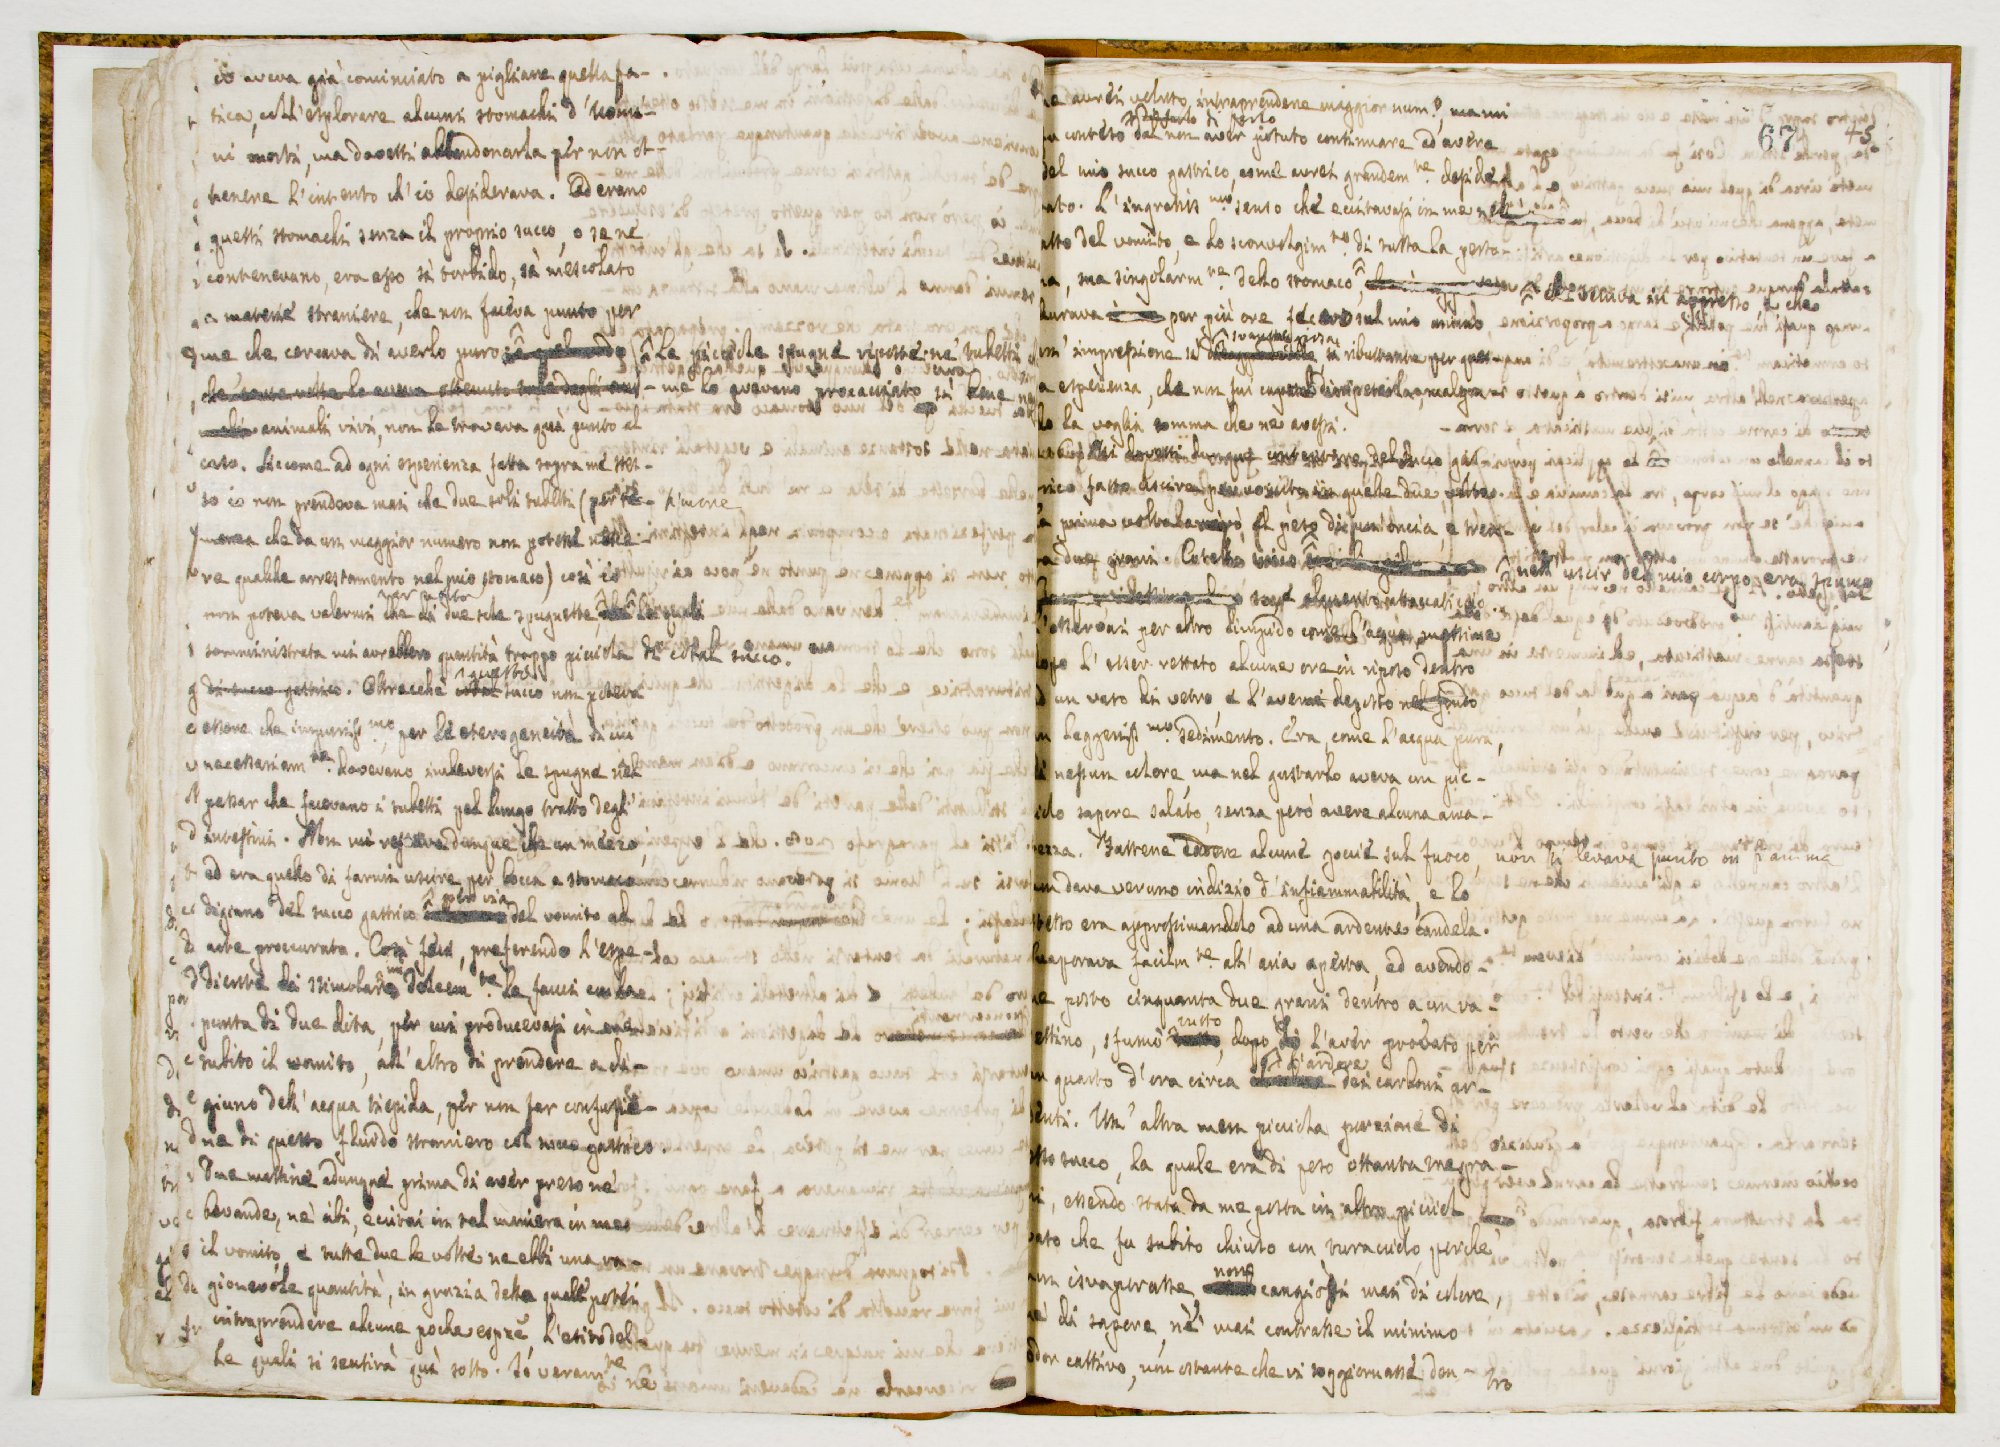 io aveva già cominciato a pigliare questa fa-
tica, coll'esplorare alcuni stomachi d'uomi-
ni morti, ma dovetti abbandonarla per non ot-
tenere l'intento ch'io desiderava. Od erano
questi stomachi senza il proprio succo, o se ne
contenevano, era esso sì torbido, sì mescolato
a materie straniere, che non faceva punto per
me che cercava di averlo puro. Le picciole spugne riposte ne' tubetti
che me lo avevano procacciato sì bene negli
animali vivi, non le trovava quì punto al
caso. Siccome ad ogni esperienza fatta sopra me stes-
so io non prendeva mai che due soli tubetti (per ti-
more che da un maggior numero non potesse nasce-
re qualche arrestamento nel mio stomaco) così io
non poteva valermi che di due sole spugnette, le quali
somministrata mi avrebbero quantità troppo picciola di cotal succo.
di succo gastrico. Oltrecchè questo succo non poteva
essere che impuriss.mo per le eterogeneità di cui
necessariam.te dovevano imbeversi le spugne nel
passar che facevano i tubetti pel lungo tratto degl'
intestini. Non mi restava dunque che un mezzo,
ed era quello di farmi uscire per bocca a stomaco
digiuno del succo gastrico per via del vomito ad
arte proccurato. Così feci, preferendo l'espe-
diente di stimolarmi dolcem.te le fauci colla
punta di due dita, per cui producevasi in me
subito il vomito, all'altro di prendere a di-
giuno dell'acqua tiepida, per non far confusio-
ne di questo fluido straniero col succo gastrico.
Due mattine adunque prima di aver preso nè
bevande, nè cibi, eccitai in tal maniera in me
il vomito, e tutte due le volte ne ebbi una ra-
gionevole quantità, in grazia della quale potei
intraprendere alcune poche espze l'esito del-
le quali si sentirà quà sotto. Io veram.te
ne
67 45
ne aurei voluto intraprendere maggior num.o, ma mi
del non aver potuto continuare ad avere
del mio succo gastrico, come avrei grandem.te deside-
rato. L'ingratiss.mo senso che eccitavasi in me nell'
atto del vomito, e lo sconvolgim.to di tutta la perso-
na, ma singolarm.te dello stomaco, che veniva in appresso e che
durava per più ore fecero sul mio animo
un'impressione sì svantaggiosa, sì ributtante per quel-
la esperienza, che non fui capace di ripeterla, malgra-
do la voglia somma che ne avessi.
Mi dovetti dunque contentare del succo gas-
trico fatto uscire per vomito in quelle due volte.
la prima volta arrivò al peso di un'oncia, e tren-
ta due grani. Cotesto succo nell'uscir del mio corpo era spumo
so, e alquanto attaccaticcio.
L'osservai per altro limpido come l'acqua, massime
dopo l'esser restato alcune ore in riposo dentro
d'un vaso di vetro, e l'avere deposto nel fondo
un leggeriss.mo sedimento. Era, come l'acqua pura,
di nessun colore, ma nel gustarlo aveva un pic-
ciolo sapore salato, senza però avere alcuna ama-
rezza. Fattene cadere alcune goccie sul fuoco, non si levava punto in fiamma
non dava veruno indizio d'infiammabilità, e lo
stesso era approssimandolo ad una ardente candela.
Svaporava facilm.te all'aria aperta, ed avendo-
ne posto cinquanta due grani dentro a un va-
settino, sfumò tutto, dopo di l'aver provato per
un quarto d'ora circa l'ardore dei carboni ar-
denti. Un'altra men picciola porzione di
esso succo, la quale era di peso ottanta tre gra-
ni, essendo stata da me posta in altro picciol
vaso che fu subito chiuso con turacciolo, perchè
non isvaporasse, non cangiossi mai di colore,
nè di sapore, nè mai contrasse il minimo
odor cattivo, non ostante che vi soggiornasse den-
tro